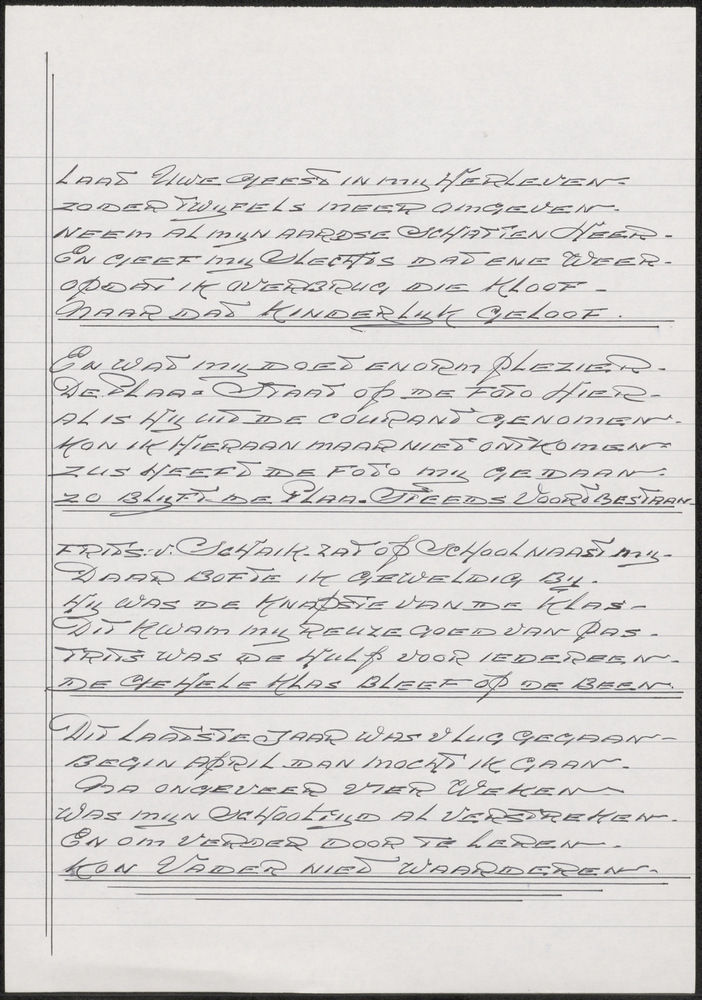 LAAT UWE GEEST IN MIJ HERLEVEN-
ZODER TWIJFELS MEER OMGEVEN-
NEEM AL MIJN AARDSE SCHATTEN HEER-
EN GEEF MIJ SLECHTS DAT ENE WEER-
OPDAT IK OVERBRUG DIE KLOOF-
NAAR DAT KINDERLIJK GELOOF.
EN WAT MIJ DOET ENORM PLEZIER-
DE PLAA= STAAT OP DE FOTO HIER-
AL IS HIJ UIT DE COURANT GENOMEN-
KON IK HIERAAN MAAR NIET ONTKOMEN=
ZUS HEEFT DE FOTO MIJ GEDAAN-
ZO BLIJFT DE PLAA= STEEDS VOORTBESTAAN-
FRITS: V: SCHAIK. ZAT OP SCHOOL NAAST MIJ-
DAAR BOFTE IK GEWELDIG BIJ.
HIJ WAS DE KNAPSTE VAN DE KLAS-
DIT KWAM MIJ REUZE GOED VAN PAS.
FRITS WAS DE HULP VOOR IEDEREEN-
DE GEHELE KLAS BLEEF OP DE BEEN.
DIT LAATSTE JAAR WAS VLUG GEGAAN-
BEGIN APRIL DAN MOCHT IK GAAN-
NA ONGEVEER VIER WEKEN-
WAS MIJN SCHOOLTIJD AL VERSTREKEN-
EN OM VERDER DOOR TE LEREN-
KON VADER NIET WAARDEREN-